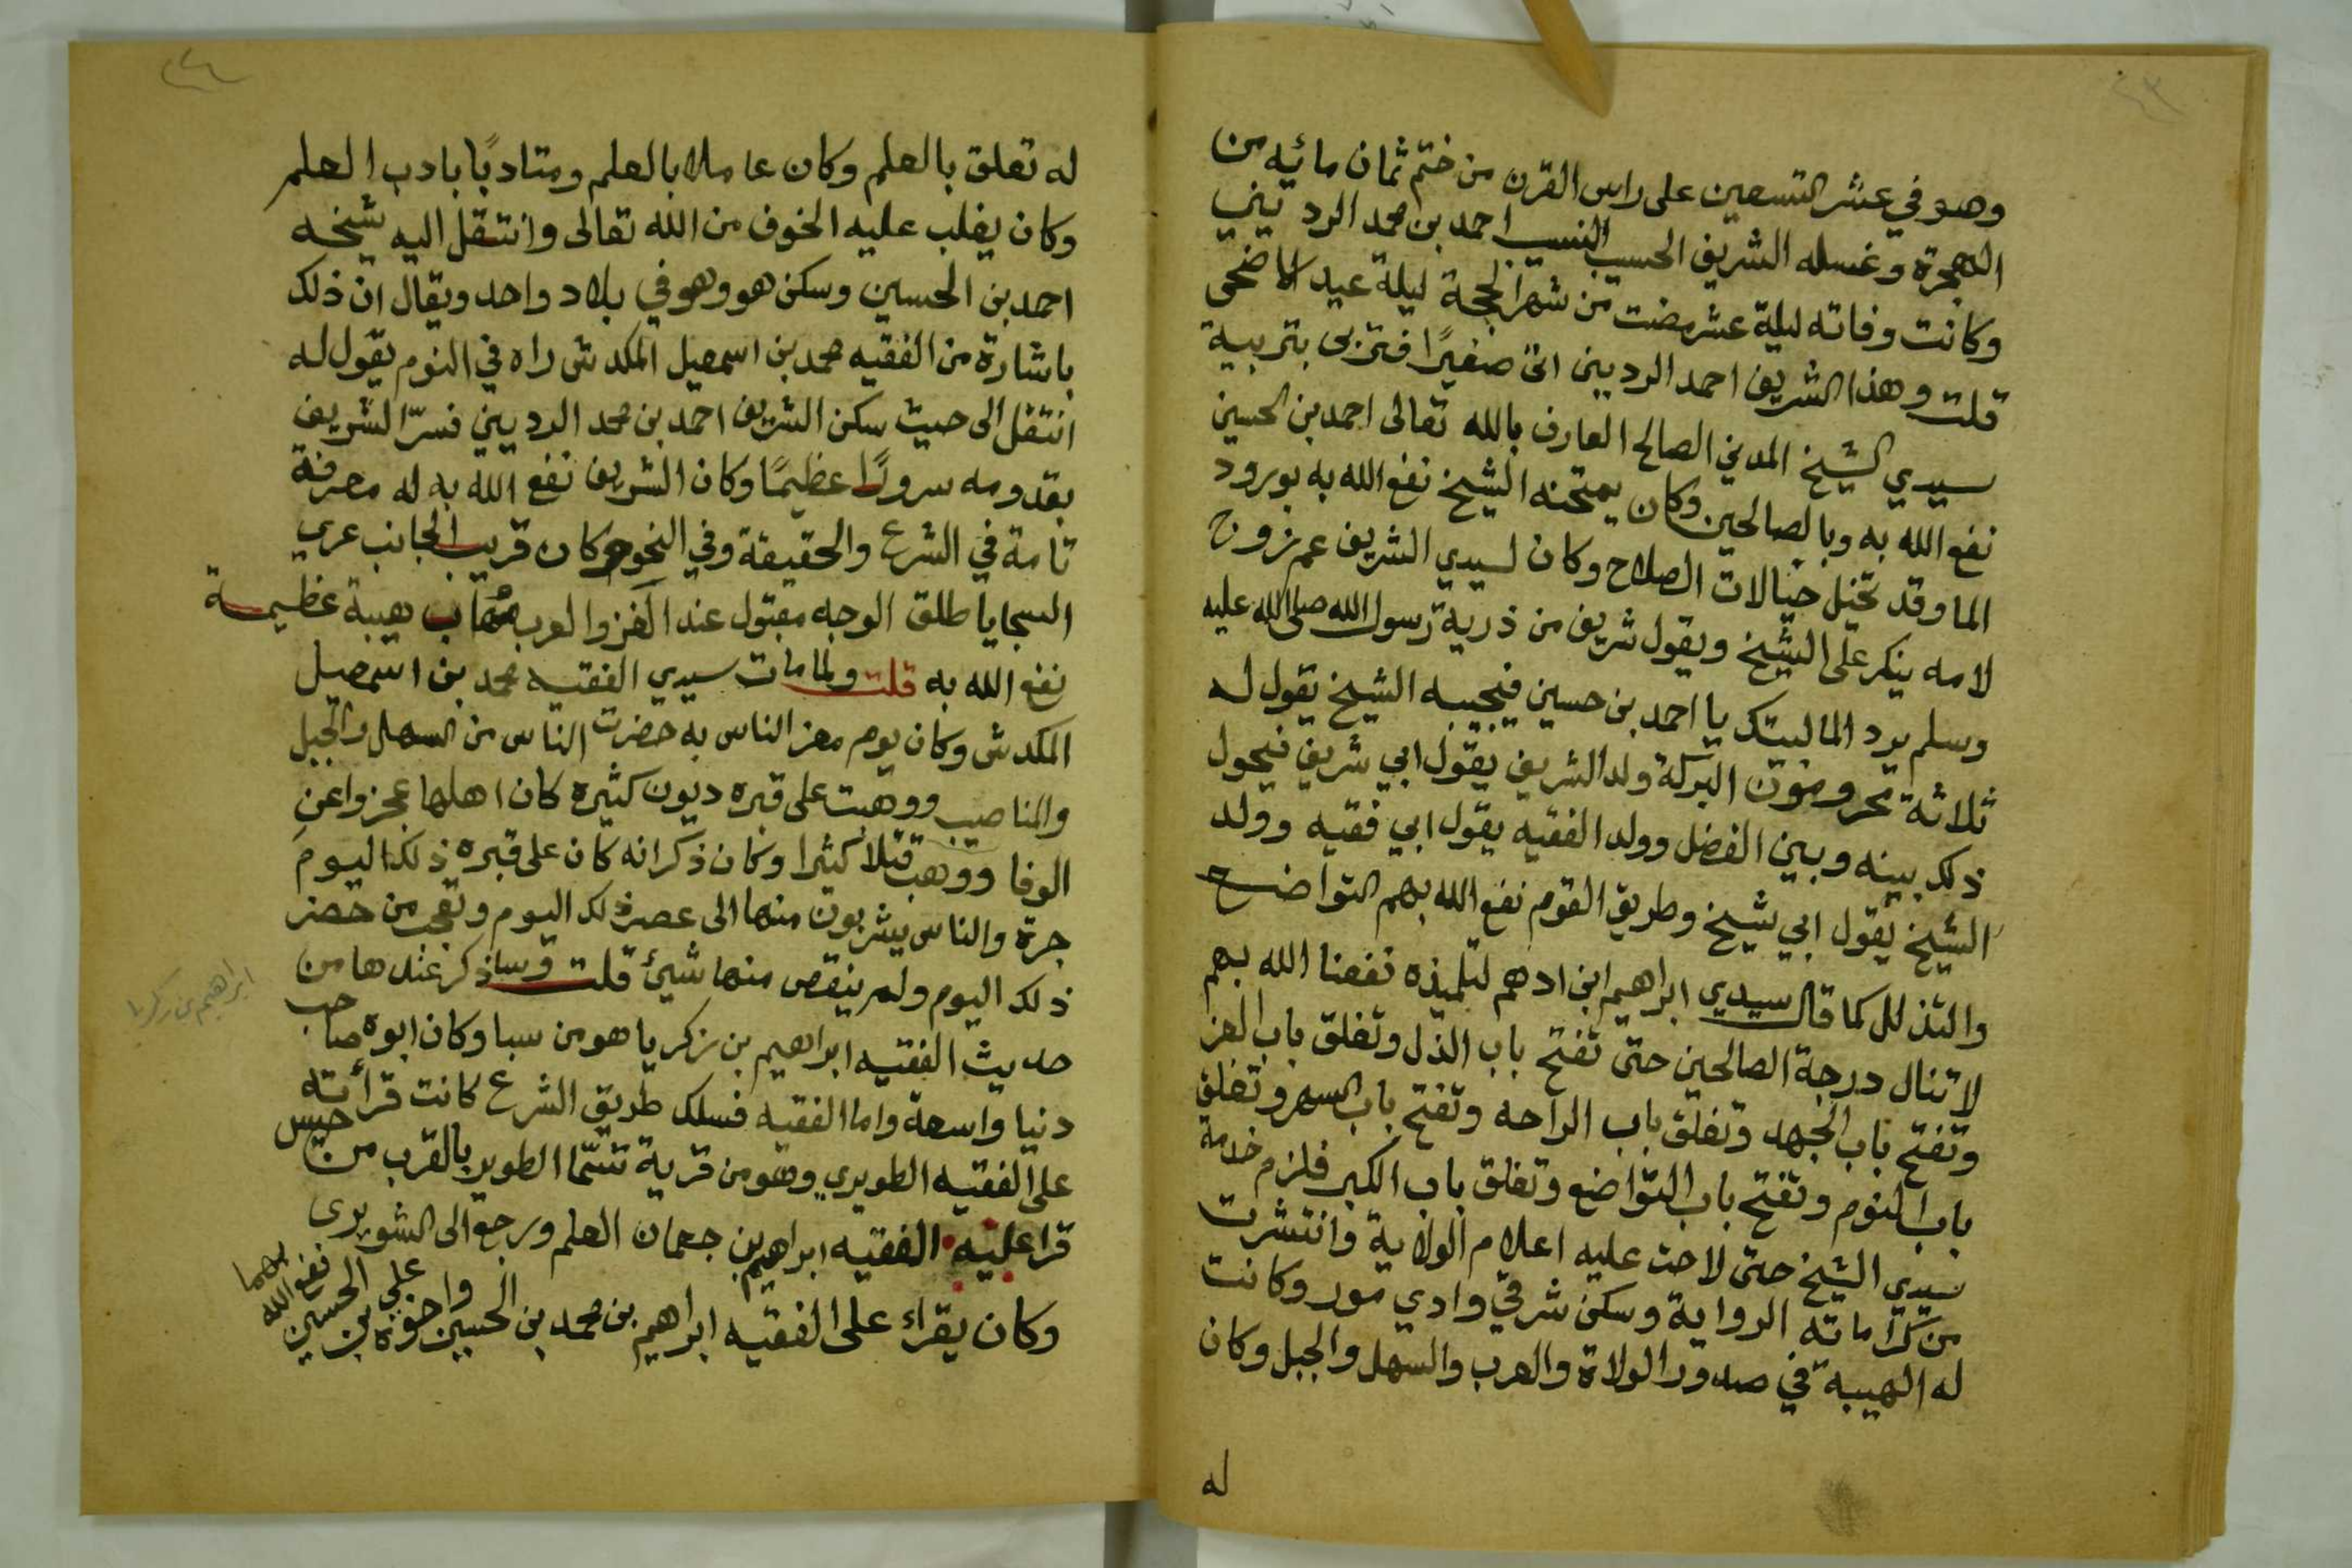 وهو في عشر التسعين على راس القرن من ختم ثمان مائيه من
الهجرة وغسله الشريف الحسيب النسيب احمد بن محمد الرديني
وكانت وفاته ليلة عشر مضت من شهر الحجة ليلة عيد الاضحى
قلت وهذا الشريف احمد الرديني اتى صغيرًا فتربى بتربية
سيدي الشيخ المدني الصالح العارف بالله تعالى احمد بن الحسين
نفع الله به وبالصالحين وكان يمتحنه الشيخ نفع الله به بورود
الما وقد تخيل خيالات الصلاح وكان لسيدي الشريف عم زوج
لامه ينكر على الشيخ ويقول شريف من ذرية رسول الله صلى الله عليه
وسلم يرد الما لبيتك يا احمد بن حسين فيجيبه الشيخ يقول له
ثلاثة محرومون البركة ولد الشريف يقول ابي شريف فيحول
ذلك بينه وبين الفضل وولد الفقيه يقول ابي فقيه وولد
الشيخ يقول ابي شيخ وطريق القوم نفع الله بهم التواضع
والتذلل كما قال سيدي ابراهيم ابن ادهم لتلميذه نفعنا الله بهم
لا تنال درجة الصالحين حتى تفتح باب الذل وتغلق باب العز
وتفتح باب الجهد وتغلق باب الراحه وتفتح باب السهر وتغلق
باب النوم وتفتح باب التواضع وتغلق باب الكبر فلزم خدمة
سيدي الشيخ حتى لاحت عليه اعلام الولاية وانتشرت
من كراماته الرواية وسكن شرقي وادي مور وكانت
له الهيبة في صدور الولاة والعرب والسهل والجبل وكان
له
له تعلق بالعلم وكان عاملا بالعلم ومتادبًا بادب العلم
وكان يغلب عليه الخوف من الله تعالى وانتقل اليه شيخه
احمد بن الحسين وسكن هو وهو في بلاد واحد ويقال ان ذلك
باشارة من الفقيه محمد بن اسمعيل المكدش راه في النوم يقول له
انتقل الى حيث سكن الشريف احمد بن محمد الرديني فسرّ الشريف
بقدومه سرورًا عظيمًا وكان الشريف نفع الله به له معرفة
تامة في الشرع والحقيقة وفي النحو وكان قريب الجانب عري
السجايا طلق الوجه مقبول عند الغز والعرب مهاب هيبة عظيمة
نفع الله به قلت ولما مات سيدي الفقيه محمد بن اسمعيل
المكدش وكان يوم معز الناس به حضرت الناس من السهل والجبل
والمناصيب ووهبت على قبره ديون كثيره كان اهلها عجزوا عن
الوفا ووهب قتلا كثيرا وكان ذكر انه كان على قبره ذلك اليوم
جرة والناس يشربون منها الى عصر ذلك اليوم وتعجب من حضر
ذلك اليوم ولم ينقص منها شيئ قلت وساذكر عندها من
حديث الفقيه ابراهيم بن زكريا هو من سبا وكان ابوه صاحب
دنيا واسعة واما الفقيه فسلك طريق الشرع كانت قرأته
على الفقيه الطويري وهو من قرية تسمّا الطوير بالقرب من حيس
قرا عليه الفقيه ابراهيم بن جعمان العلم ورجع الى الشويرى
وكان يقراء على الفقيه ابراهيم بن محمد بن الحسين واخوه علي بن الحسين نفع الله بهما
ابراهيم بن زكريا